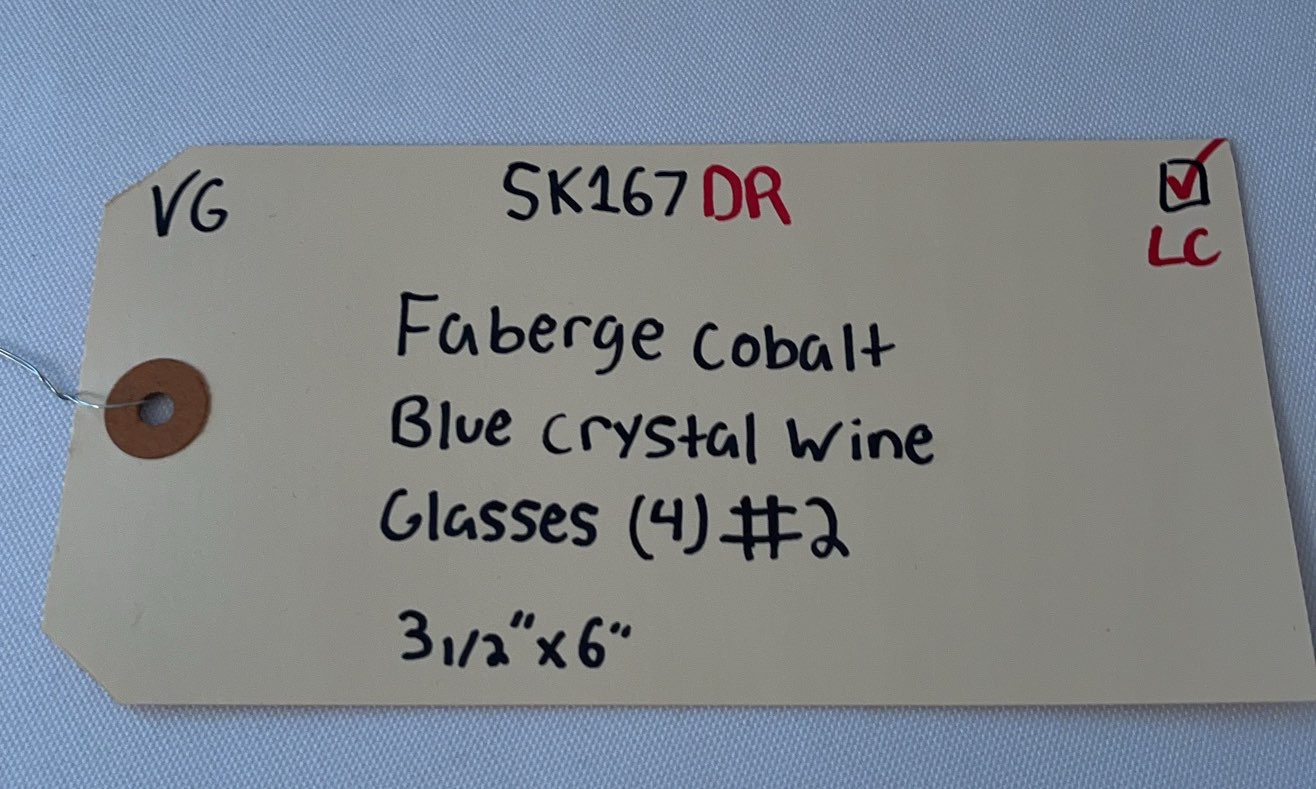 VG SK167 DR ☑
LC
Faberge Cobalt
Blue Crystal Wine
Glasses (4) #2
3 1/2" x 6"